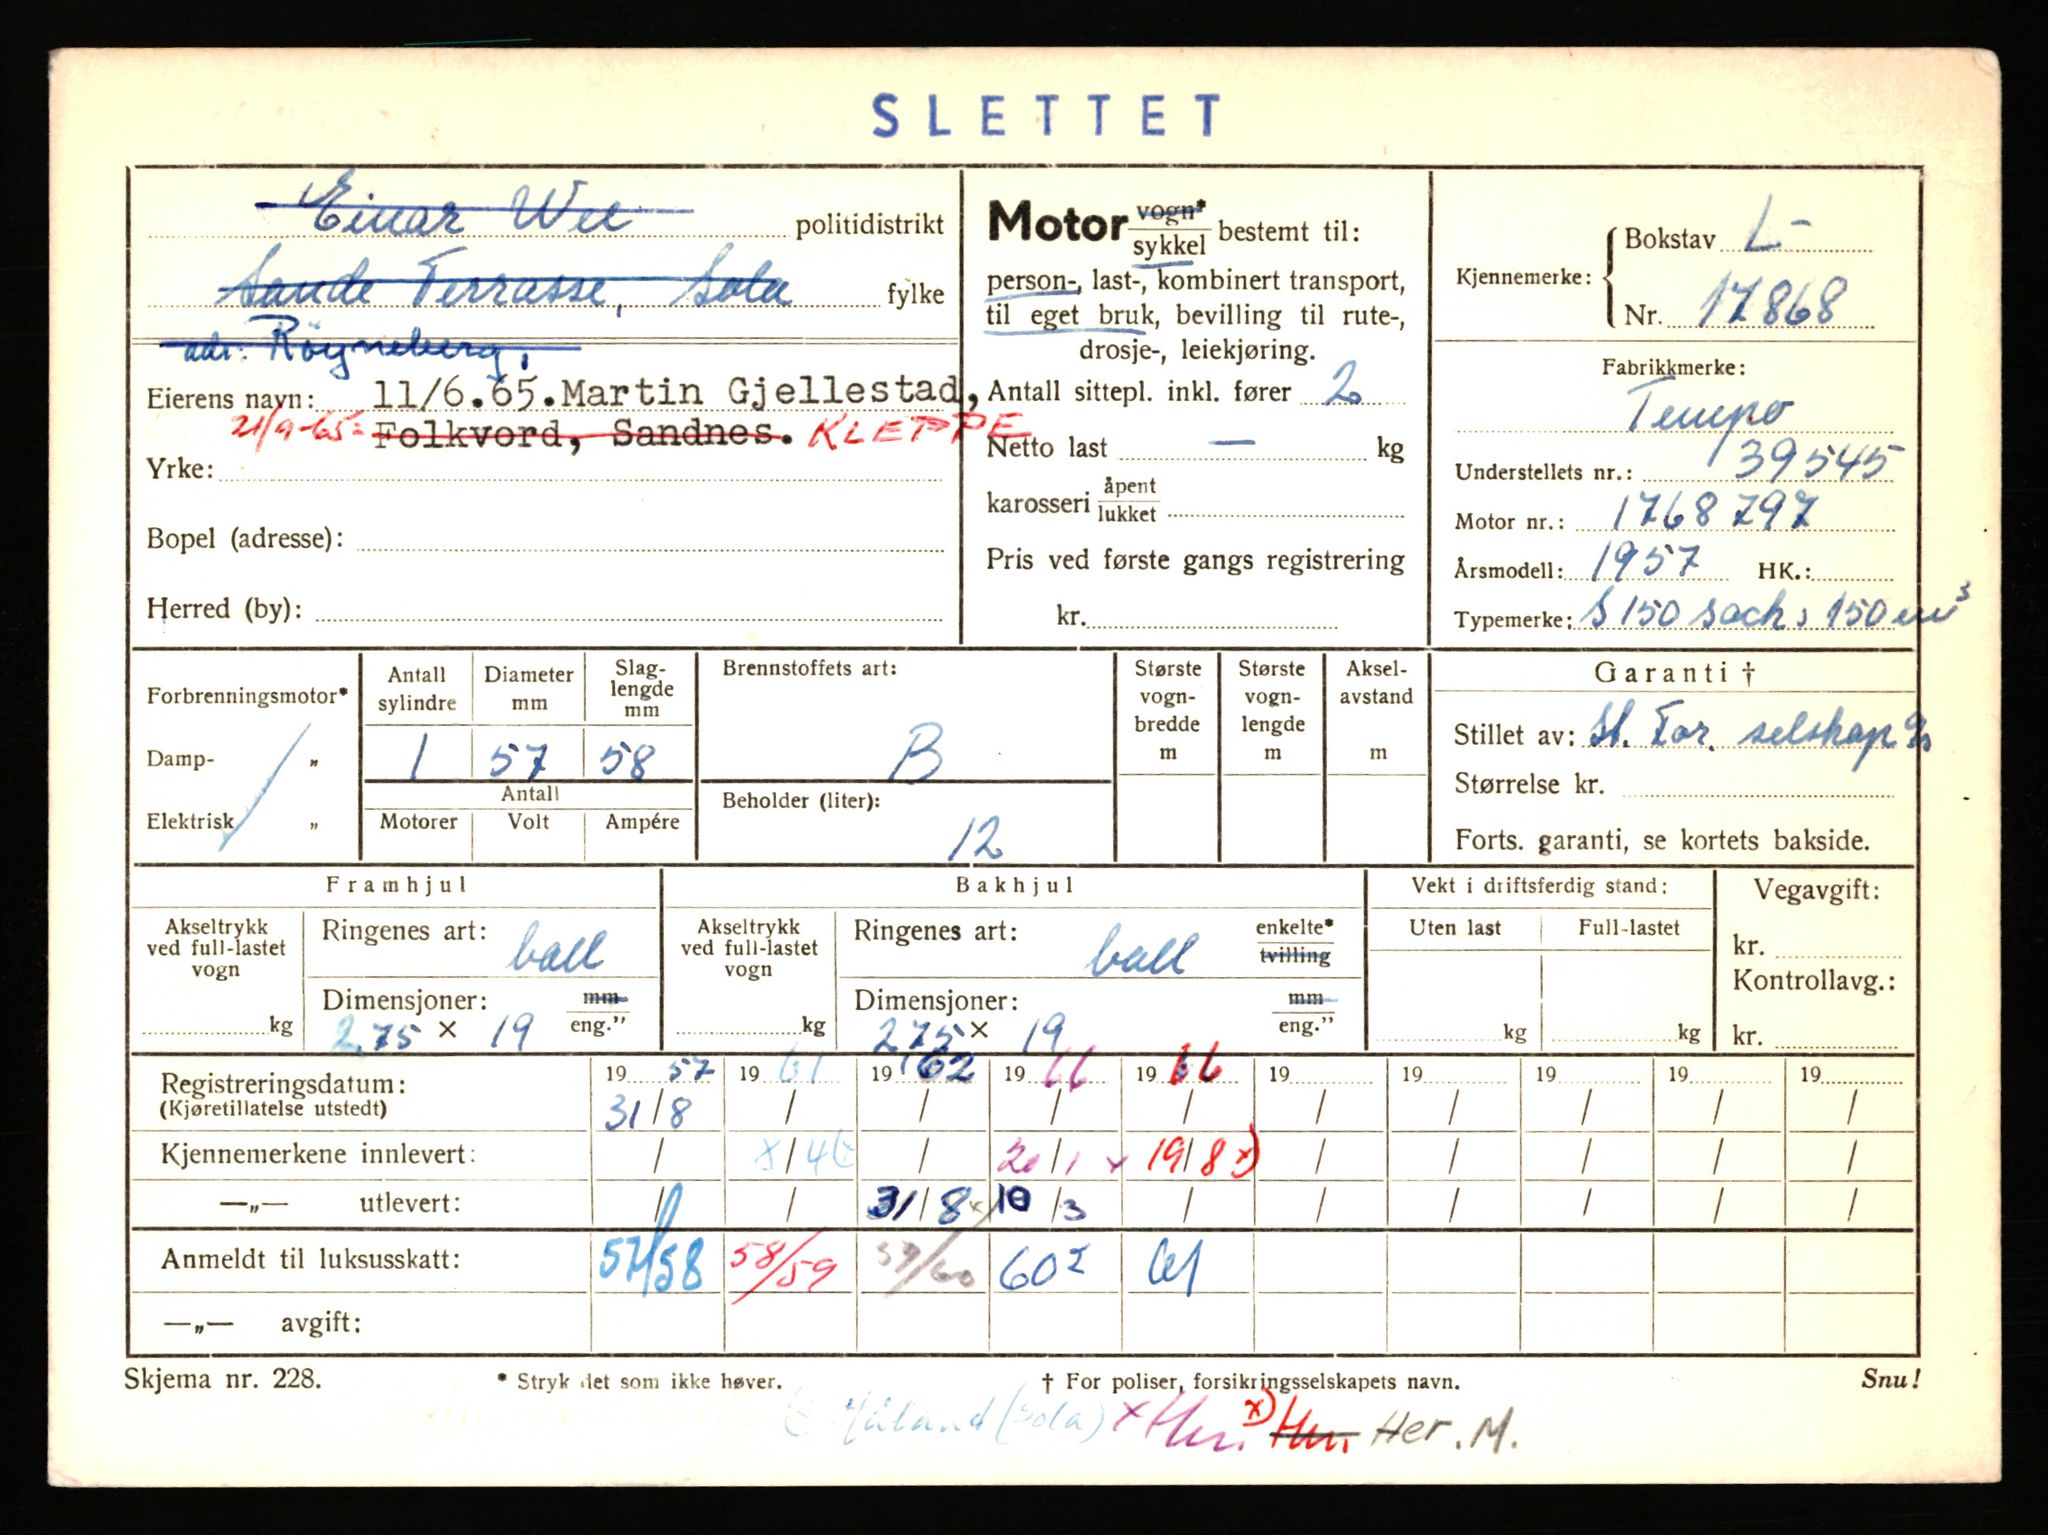 SLETTET
Einar Wee politidistrikt
Sande Terrasse, Sola fylke
adr: Röyneberg,
Eierens navn: 11/6.65. Martin Gjellestad,
21/9-65= Folkvord, Sandnes. KLEPPE
Yrke:
Bopel (adresse):
Herred (by):
Motor vogn* sykkel bestemt til:
person-, last-, kombinert transport,
til eget bruk, bevilling til rute-,
drosje-, leiekjøring.
Antall sittepl. inkl. fører 2
Netto last — kg
karosseri åpent lukket
Pris ved første gangs registrering
kr.
Kjennemerke: { Bokstav L-
Nr. 17868
Fabrikkmerke:
Tempo
Understellets nr.: 39545
Motor nr.: 1768797
Årsmodell: 1957 HK.:
Typemerke: S 150 sach, 150 cm³
Forbrenningsmotor*
Damp- „
Elektrisk „
Antall sylindre
Diameter mm
Slag-lengde mm
1 57 58
Antall
Motorer Volt Ampére
Brennstoffets art:
B
Beholder (liter):
12
Største vogn-bredde m
Største vogn-lengde m
Aksel-avstand m
Garanti †
Stillet av: St. For. selskap
Størrelse kr.
Forts. garanti, se kortets bakside.
Framhjul
Akseltrykk ved full-lastet vogn
kg
Ringenes art: ball
Dimensjoner: mm eng."
2,75 × 19
Bakhjul
Akseltrykk ved full-lastet vogn
kg
Ringenes art: ball enkelte* tvilling
Dimensjoner: mm eng."
2,75 × 19
Vekt i driftsferdig stand:
Uten last Full-lastet
kg kg
Vegavgift:
kr.
Kontrollavg.:
kr.
Registreringsdatum: 19 57 19 61 19 62 19 66 19 66 19 19 19 19 19
(Kjøretillatelse utstedt) 31/8 / / / / / / / / /
Kjennemerkene innlevert: / /4 / 20/1 x 19/8 x) / / / / /
—„— utlevert: / / 31/8 x) 10/3 / / / / / /
Anmeldt til luksusskatt: 57/58 58/59 59/60 60² 61
—„— avgift:
Skjema nr. 228. * Stryk det som ikke høver. † For poliser, forsikringsselskapets navn. Snu!
Håland (Sola) x Her. x) Her. Her. M.